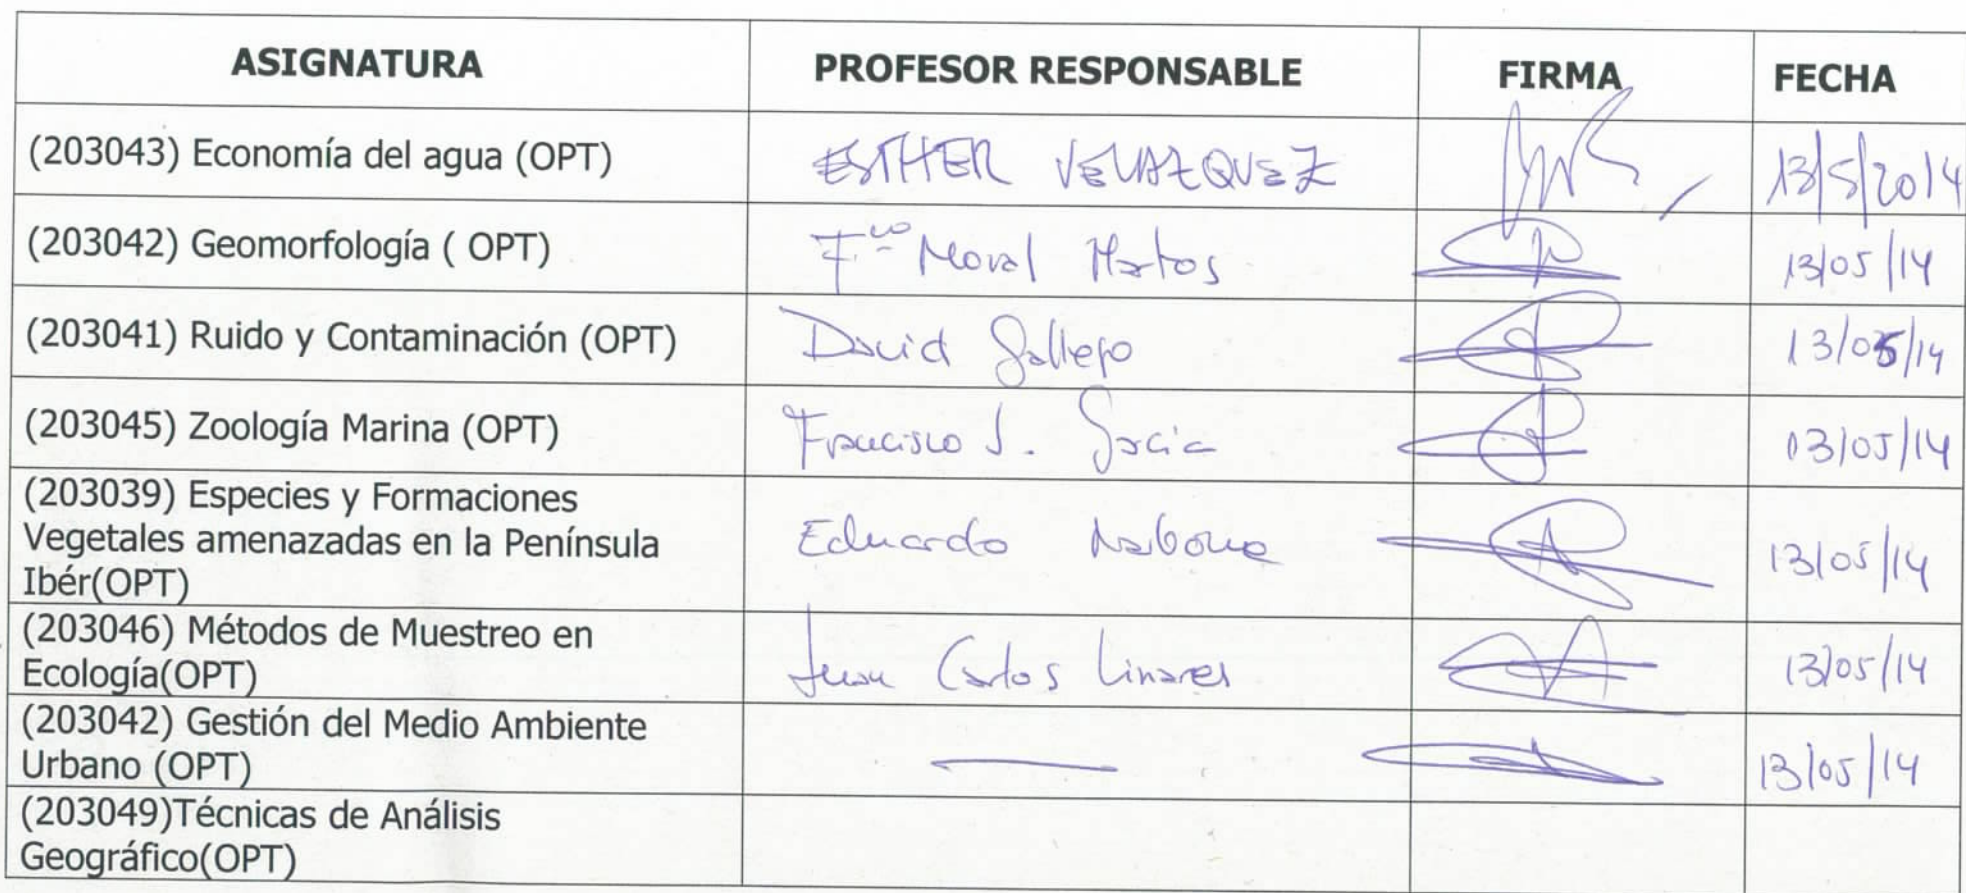 ASIGNATURA PROFESOR RESPONSABLE FIRMA FECHA
(203043) Economía del agua (OPT) ESTHER VELAZQUEZ 13/5/2014
(203042) Geomorfología ( OPT) Fco Moral Martos 13/05/14
(203041) Ruido y Contaminación (OPT) David Gallego 13/05/14
(203045) Zoología Marina (OPT) Francisco J. García 03/05/14
(203039) Especies y Formaciones
Vegetales amenazadas en la Península
Ibér(OPT) Eduardo Narbona 13/05/14
(203046) Métodos de Muestreo en
Ecología(OPT) Juan Carlos Linares 13/05/14
(203042) Gestión del Medio Ambiente
Urbano (OPT) — 13/05/14
(203049)Técnicas de Análisis
Geográfico(OPT)